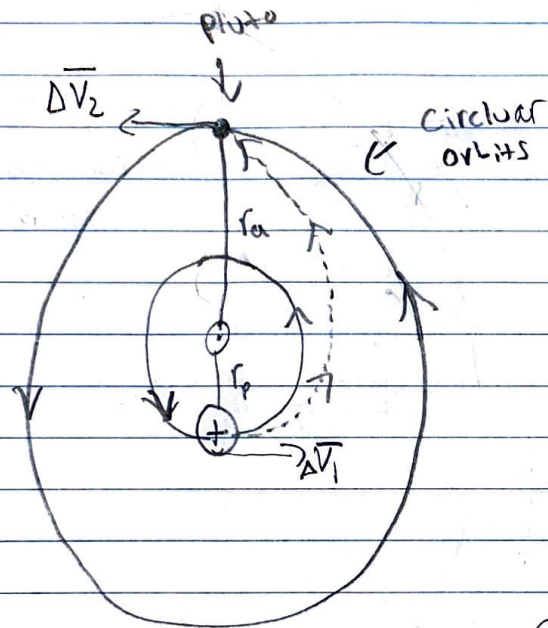 pluto
ΔV̅₂
Circluar
orbits
rₐ
rₚ
ΔV̅₁